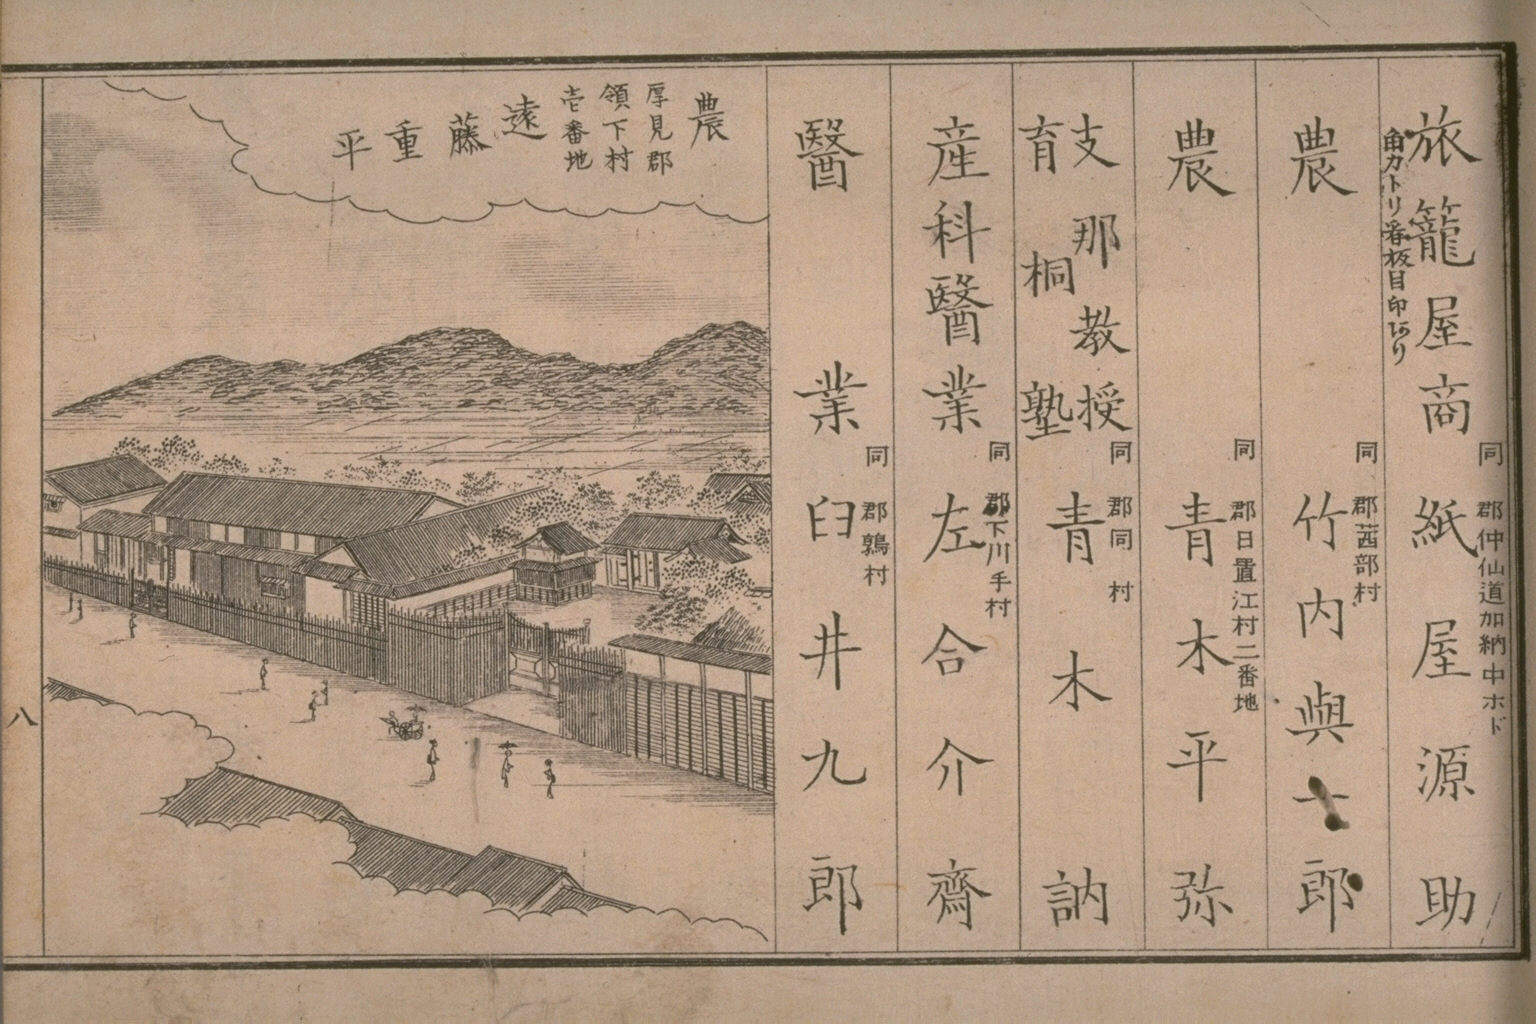 旅籠屋商
同郡仲仙道加納中ホド
紙屋源助
農
同郡茜部村
竹内與十郎
農
同郡日置江村二番地
青木平弥
支那教授
育桐塾
同郡同村
青木訥
産科醫業
同郡下川手村
左合介齋
醫業
同郡鶉村
臼井九郎
農
厚見郡
領下村
壱番地
遠藤重平
八